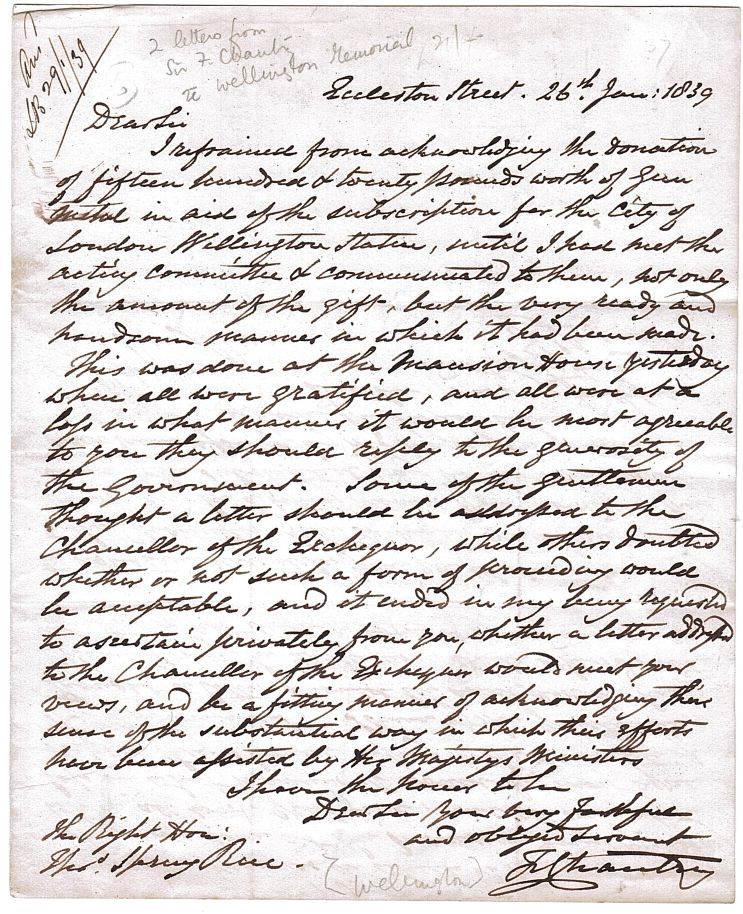 Ans^d
29/1/39
2 letters from
Sir F. Chantry
re Wellington Memorial, 21/-
Eccleston Street. 26th. Jan: 1839
Dear Sir
I refrained from acknowledging the donation
of fifteen hundred & twenty pounds worth of Gun
metal in aid of the subscription for the City of
London Wellington Statue, until I had met the
acting committee & communicated to them, not only
the amount of the gift, but the very ready and
handsome manner in which it had been made.
This was done at the Mansion House yesterday
when all were gratified, and all were at a
loss in what manner it would be most agreeable
to you they should reply to the generosity of
the Government. Some of the gentlemen
thought a letter should be addressed to the
Chancellor of the Exchequor, while others doubted
whether or not such a form of proceeding would
be acceptable, and it ended in my being requested
to ascertain privately from you, whether a letter addressed
to the Chancellor of the Exchequer would meet your
views, and be a fitting manner of acknowledging their
sense of the substantial way in which their efforts
have been assisted by Her Majestys Ministers
I have the honor to be
Dear Sir Your very faithful
and obliged servant
The Right Hon:
Thos. Spring Rice.
F Chantrey
[Wellington]